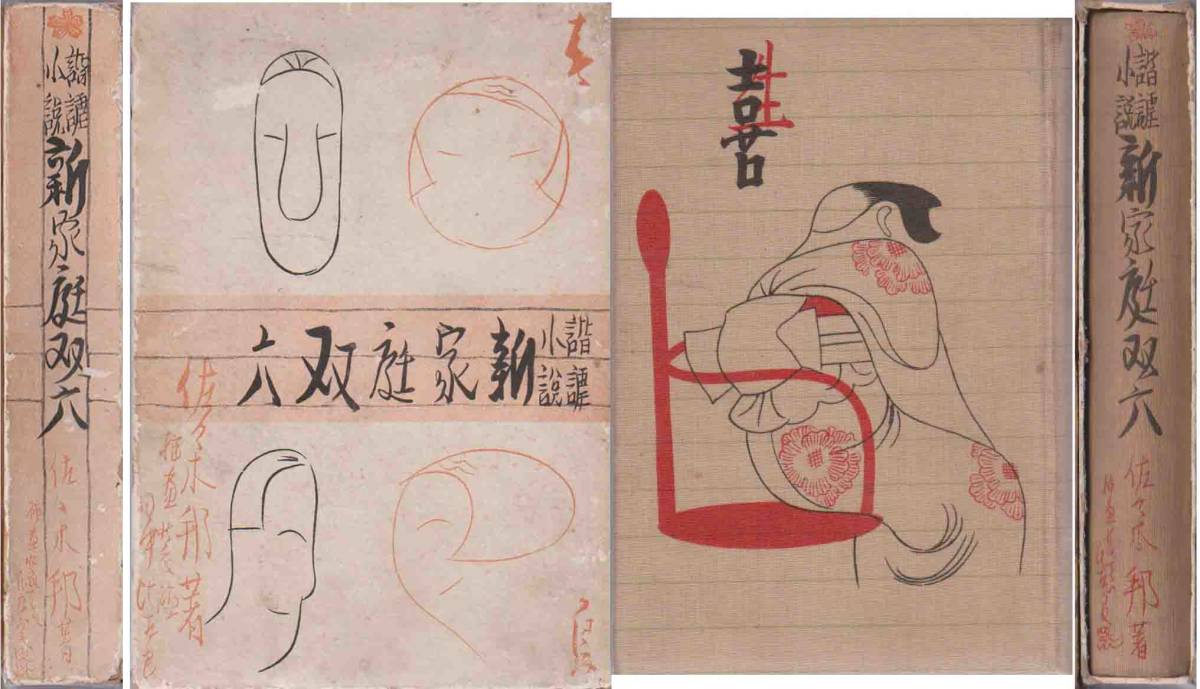 諧謔
小説
新家庭双六
佐々木邦著
諧謔
小説
新家庭双六
佐々木邦著
田中比左良
囍
諧謔
小説
新家庭双六
佐々木邦著